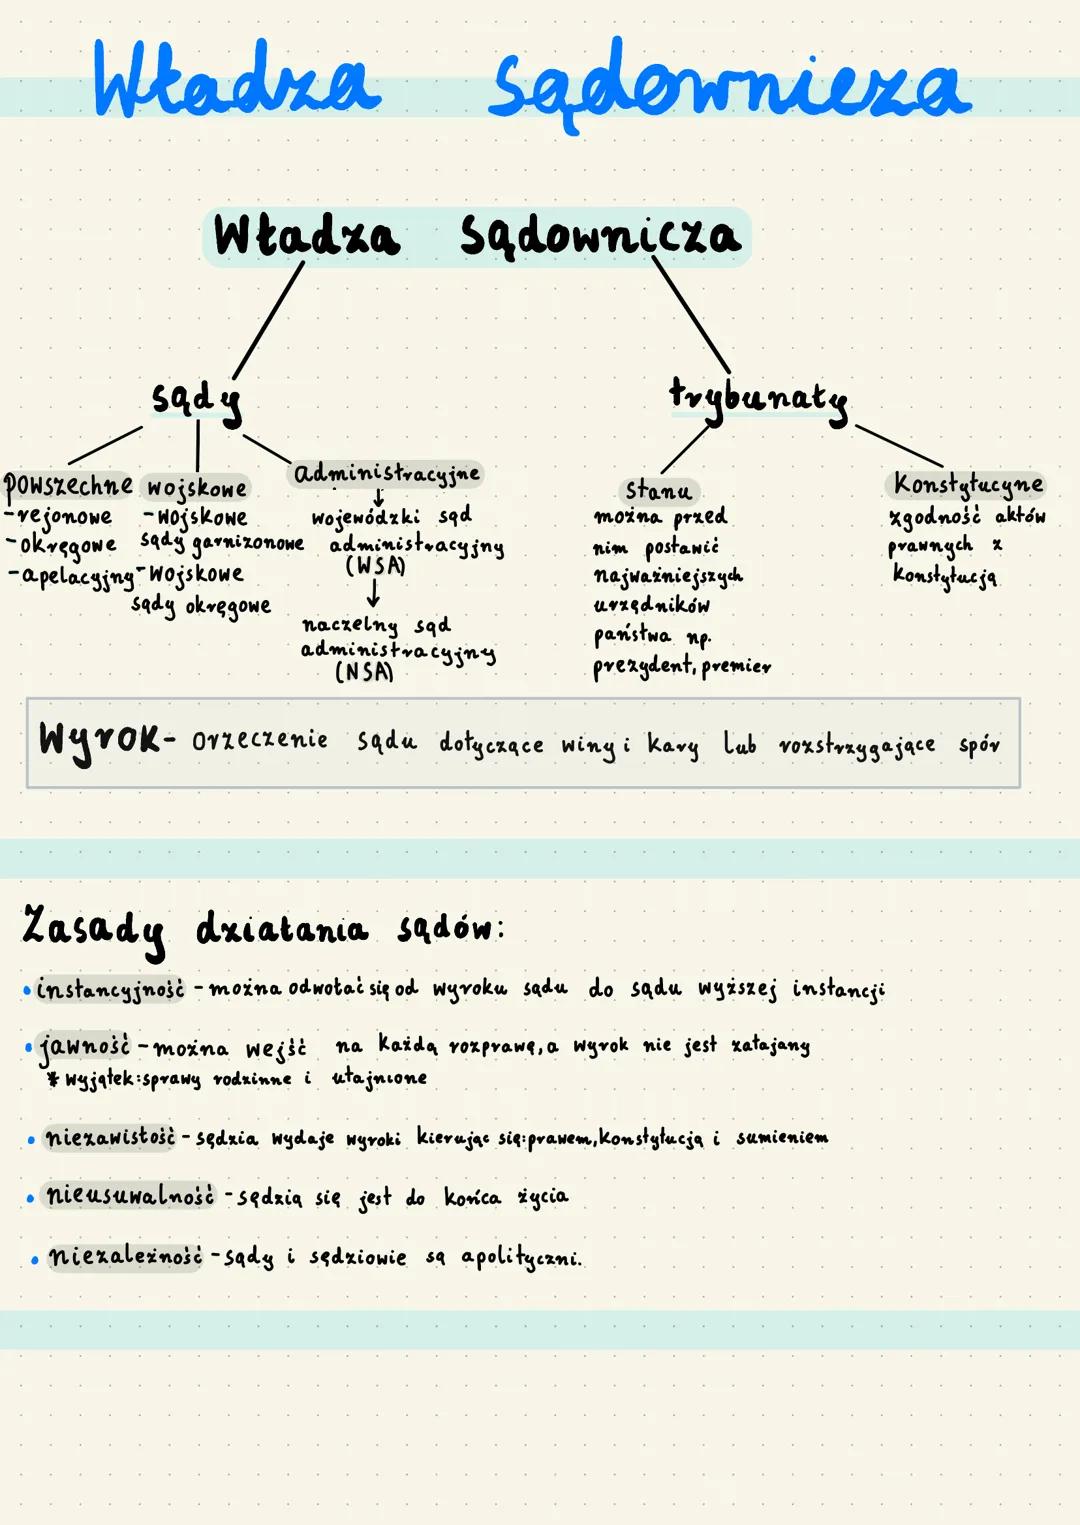 Władza sądownicza
Władza Sądownicza
sądy
trybunały
powszechne
-rejonowe
-okręgowe
-apelacyjny
wojskowe
-wojskowe
sądy garnizonowe
-wojskowe
sądy okręgowe
administracyjne
↓
wojewódzki sąd
administracyjny
(WSA)
↓
naczelny sąd
administracyjny
(NSA)
stanu
można przed
nim postawić
najważniejszych
urzędników
państwa np.
prezydent, premier
Konstytucyne
zgodność aktów
prawnych z
konstytucją
Wyrok- orzeczenie sądu dotyczące winy i kary lub rozstrzygające spór
Zasady działania sądów:
•instancyjność - można odwołać się od wyroku sądu do sądu wyższej instancji
•jawność - można wejść na każdą rozprawę, a wyrok nie jest zatajany
* wyjątek: sprawy rodzinne i utajnione
• niezawistość - sędzia wydaje wyroki kierując się: prawem, konstytucją i sumieniem
• nieusuwalność - sędzią się jest do końca życia
• niezależność - sądy i sędziowie są apolityczni.